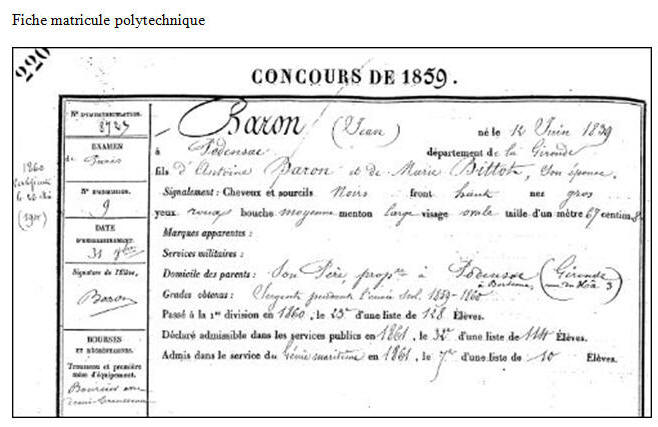 Fiche matricule polytechnique
220
CONCOURS DE 1859.
N° D'IMMATRICULATION.
8723
EXAMEN
de Paris
N° D'ADMISSION.
9
DATE
D'ENREGISTREMENT.
31 8bre
Signature de l'Élève.
Baron
BOURSES
ET DÉGRÈVEMENTS.
Trousseau et première
mise d'équipement.
Boursier avec
demi-trousseau
1860
Baron (Jean) né le 12 Juin 1839
à Podensac département de la Gironde
fils d'Antoine Baron et de Marie Bittot, son épouse.
Signalement : Cheveux et sourcils Noirs front haut nez gros
yeux roux bouche moyenne menton large visage ovale taille d'un mètre 67 centim. 8
Marques apparentes :
Services militaires :
Domicile des parents : Son Père, propre à Podensac (Gironde)
à Bordeaux, 3
Grades obtenus : Sergent pendant l'année scol. 1859-1860
Passé à la 1re division en 1860, le 25e d'une liste de 128 Élèves.
Déclaré admissible dans les services publics en 1861, le 32e d'une liste de 114 Élèves.
Admis dans le service du Génie maritime en 1861, le 7e d'une liste de 10 Élèves.